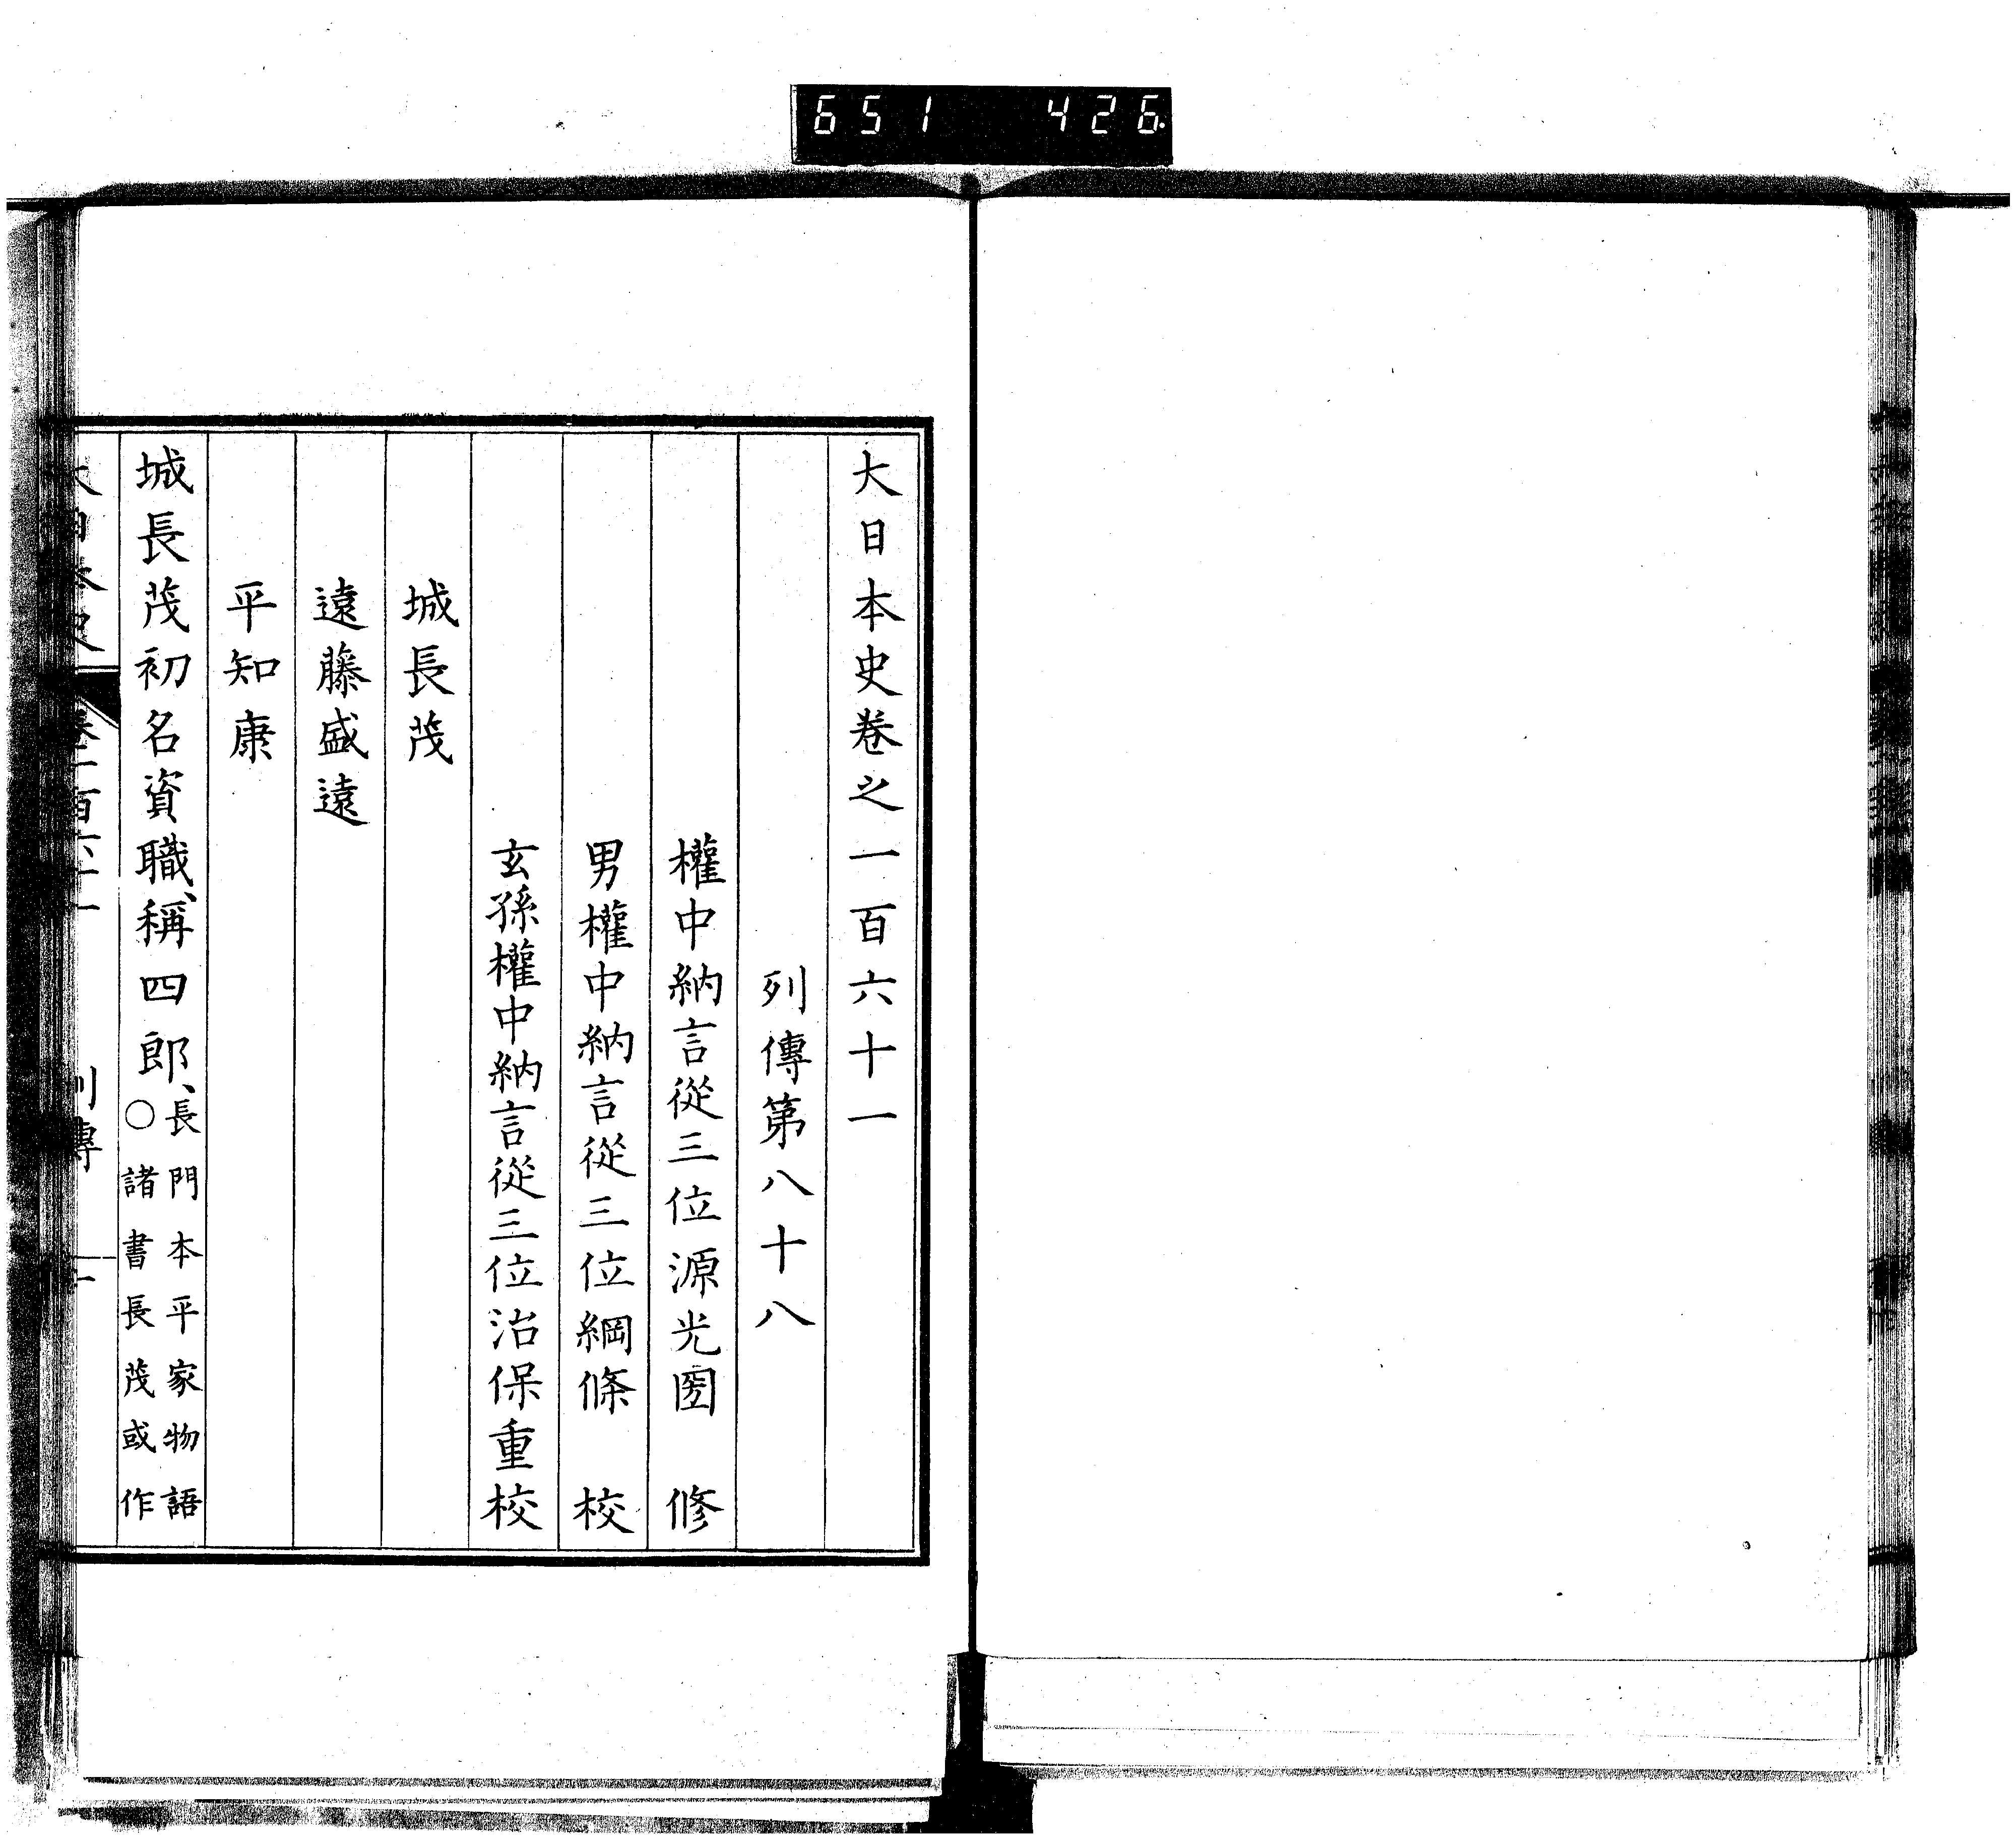 651 426
大日本史卷之一百六十一
列傳第八十八
權中納言從三位源光圀 修
男權中納言從三位綱條 校
玄孫權中納言從三位治保重校
城長茂
遠藤盛遠
平知康
城長茂初名資職、稱四郎、長門本平家物語
○諸書長茂或作